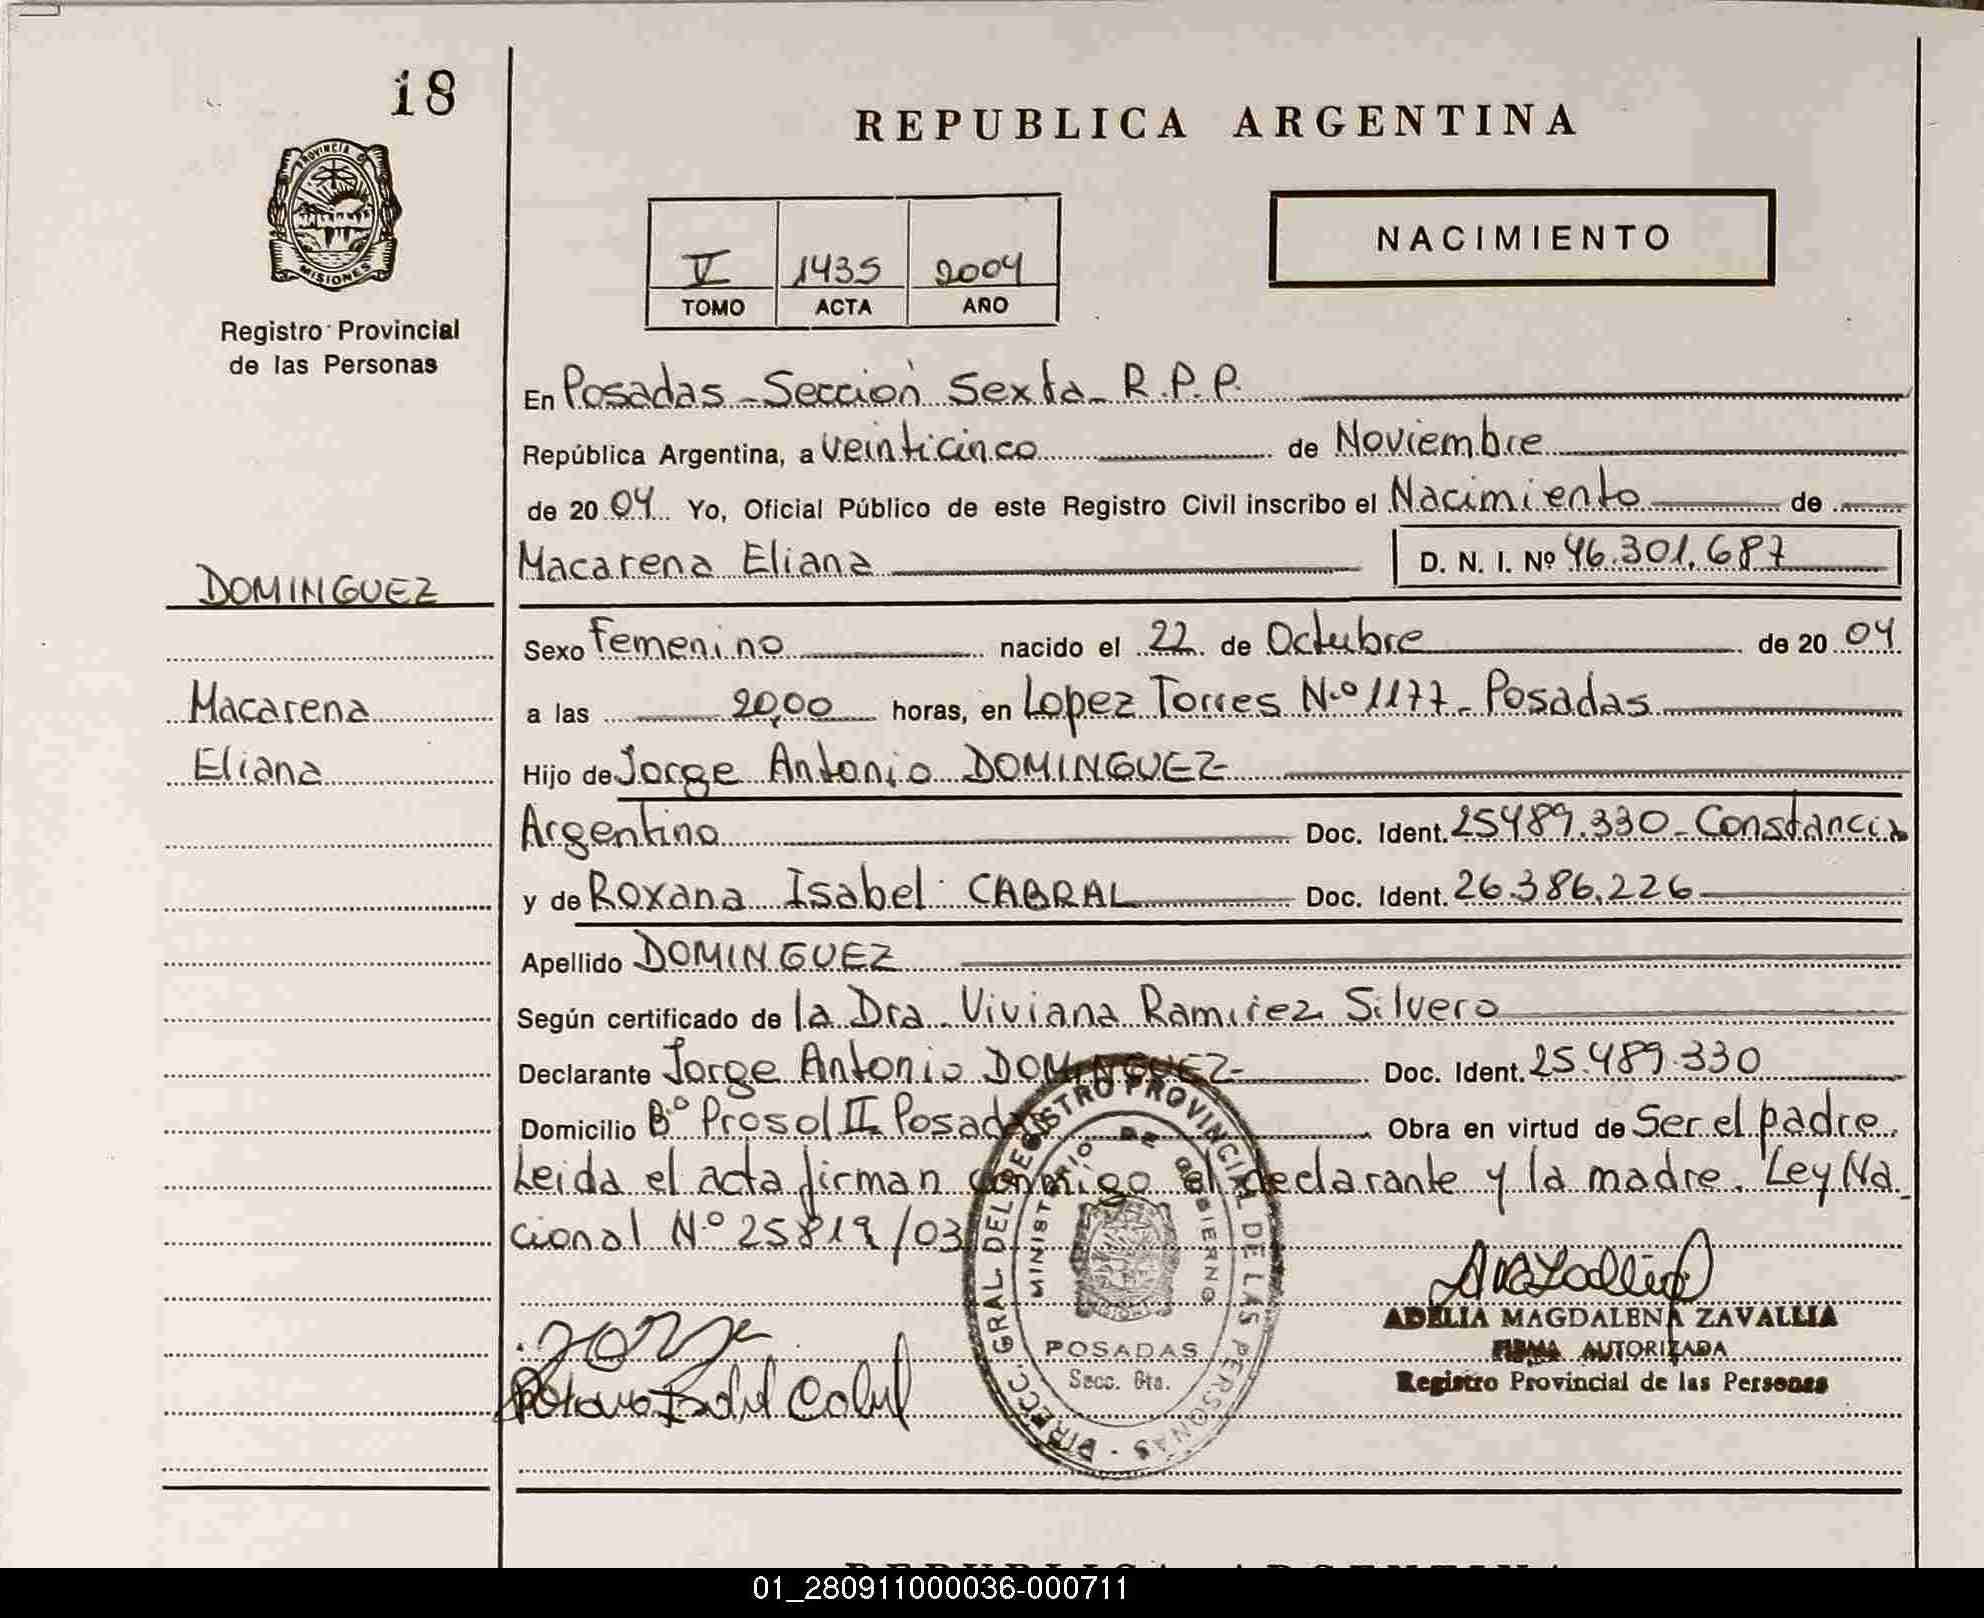 18
PROVINCIA D
MISIONES
Registro Provincial
de las Personas
REPUBLICA ARGENTINA
V 1435 2004
TOMO ACTA AÑO
NACIMIENTO
En Posadas - Sección Sexta - R.P.P.
República Argentina, a veinticinco de Noviembre
de 2004 Yo, Oficial Público de este Registro Civil inscribo el Nacimiento de
Macarena Eliana D. N. I. Nº 46.301.687
DOMINGUEZ
Macarena
Eliana
Sexo Femenino nacido el 22 de Octubre de 2004
a las 20,00 horas, en Lopez Torres N.º 1177 - Posadas
Hijo de Jorge Antonio DOMINGUEZ
Argentino Doc. Ident. 25489.330 - Constancia
y de Roxana Isabel CABRAL Doc. Ident. 26.386.226
Apellido DOMINGUEZ
Según certificado de la Dra. Viviana Ramirez Silvero
Declarante Jorge Antonio DOMINGUEZ Doc. Ident. 25.489.330
Domicilio Bº Prosol II Posadas Obra en virtud de Ser el padre.
Leida el acta firman conmigo el declarante y la madre. Ley Na
cional N.º 25819/03
DIRECC. GRAL. DEL REGISTRO PROVINCIAL DE LAS PERSONAS
MINISTERIO DE GOBIERNO
POSADAS
Secc. 6ta.
Jorge
Isabel Cabral
ADELIA MAGDALENA ZAVALLIA
FIRMA AUTORIZADA
Registro Provincial de las Personas
01_280911000036-000711